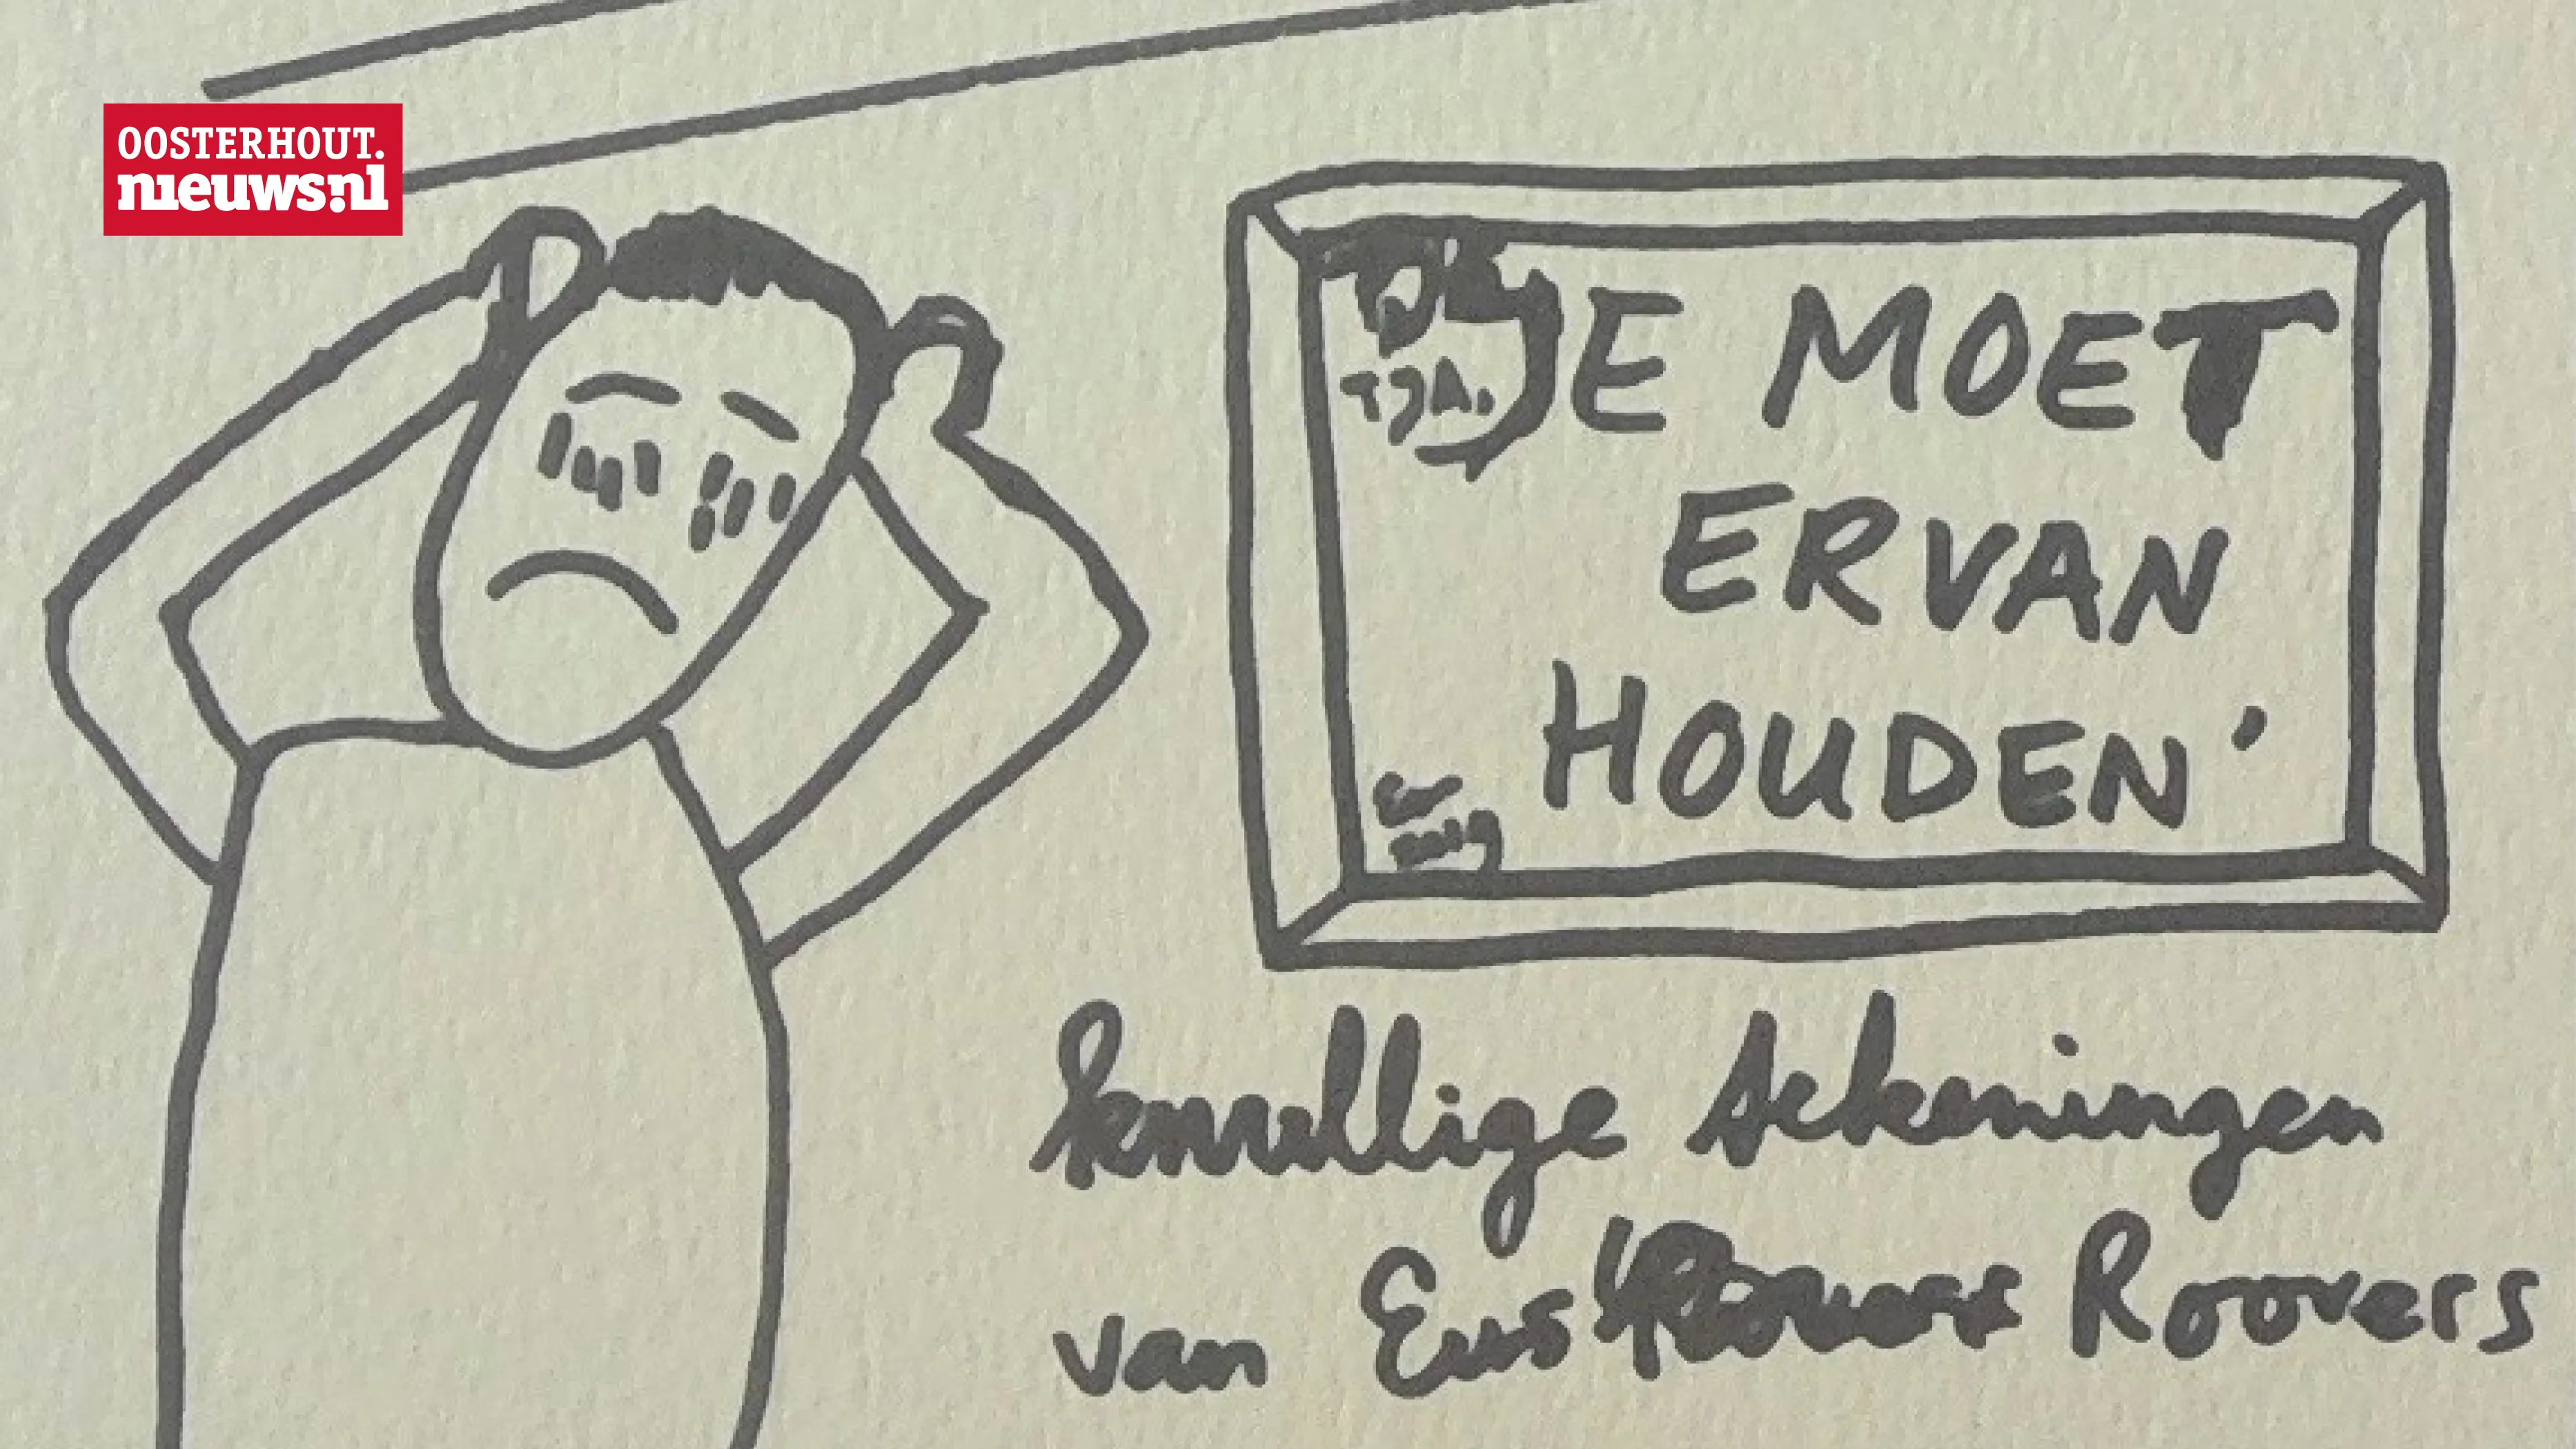 OOSTERHOUT.
nieuws.nl
TJA.
JE MOET
ER VAN
HOUDEN'
Knullige tekeningen
van Eus Roovers